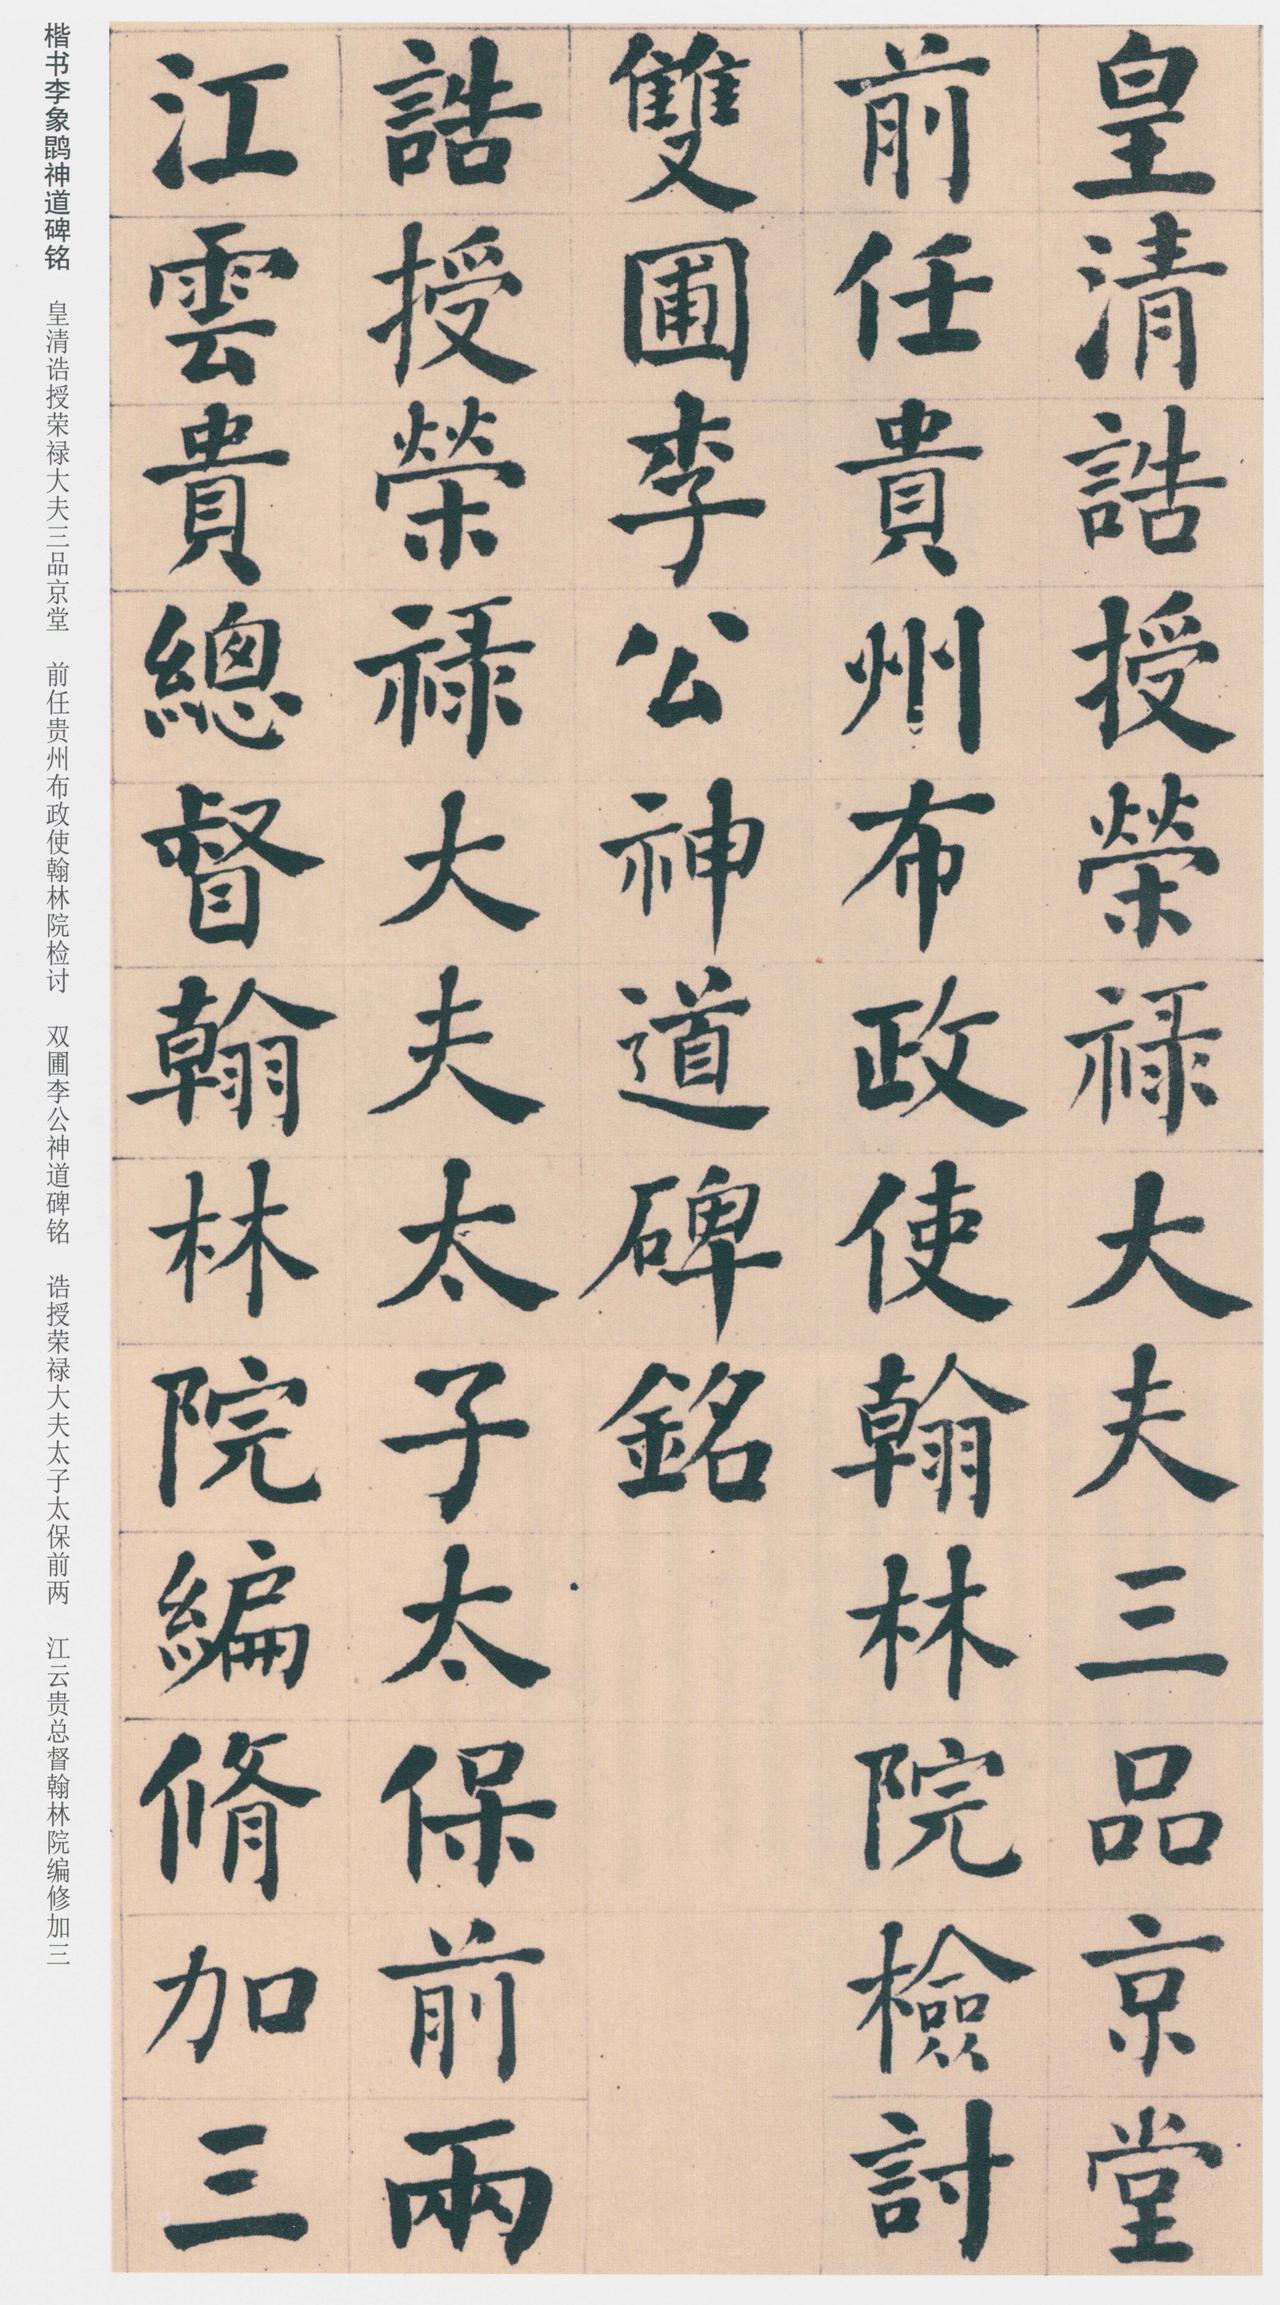 皇清誥授榮禄大夫三品京堂
前任貴州布政使翰林院檢討
雙圃李公神道碑銘
誥授榮禄大夫太子太保前兩
江雲貴總督翰林院編脩加三
楷书李象鹍神道碑铭 皇清诰授荣禄大夫三品京堂 前任贵州布政使翰林院检讨 双圃李公神道碑铭 诰授荣禄大夫太子太保前两 江云贵总督翰林院编修加三